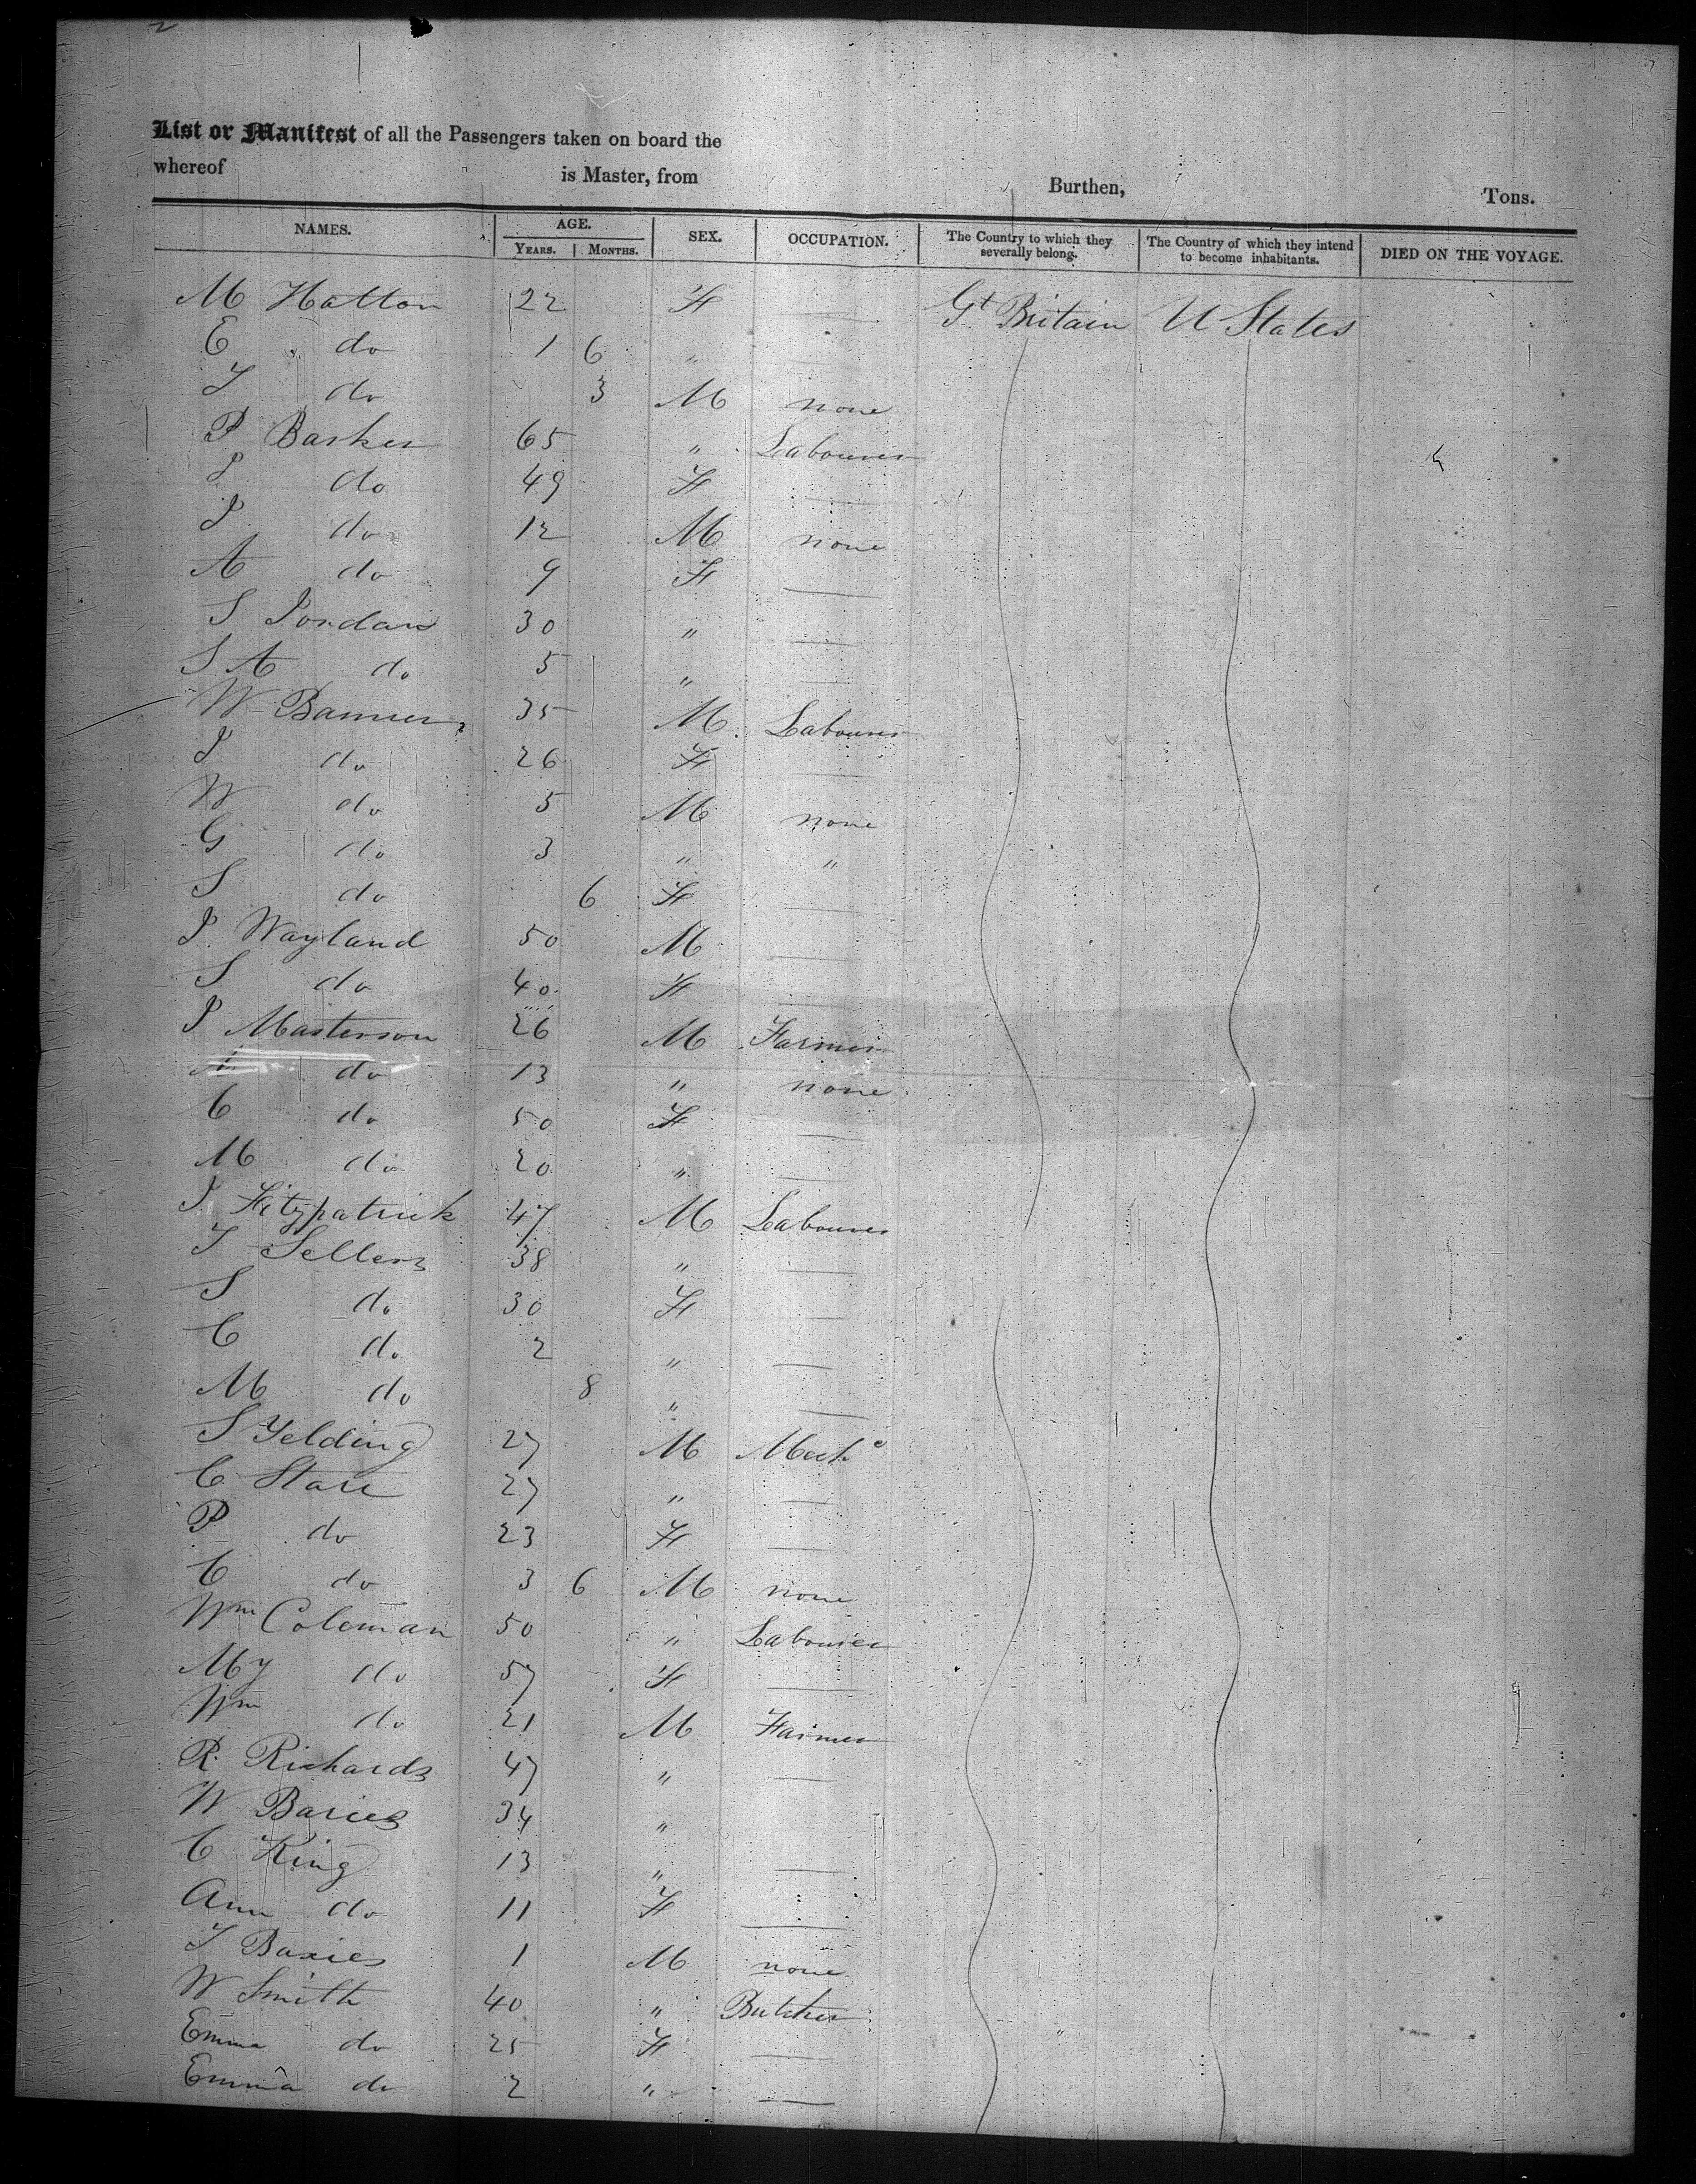 List or Manifest of all the Passengers taken on board the
whereof is Master, from Burthen, Tons.
NAMES. AGE. YEARS. MONTHS. SEX. OCCUPATION. The Country to which they severally belong. The Country of which they intend to become inhabitants. DIED ON THE VOYAGE.
M Hatton 22 F — Gt Britain U States
E do 1 6 " —
T do 3 M none
P Barker 65 " Labourer
do 49 F —
do 12 M none
A do 9 F —
S Jordan 30 " —
S A do 5 " —
W 35 M Labourer
do 26 F —
W do 5 M none
G do 3 " "
S do 6 F —
J. Wayland 50 M —
S do 40 F —
P Masterson 26 M Farmer
do 13 " none
C do 50 F —
M do 20 " —
J. Fitzpatrick 47 M Labourer
T Sellers 38 " —
S do 30 F —
C do 2 " —
M do 8 " —
S Yelding 27 M Mechc
C Stare 27 " —
P do 23 F —
C do 3 6 M none
Wm Coleman 50 " Labourer
My do 57 F —
Wm do 21 M Farmer
R. Richards 47 " —
W 34 " —
C King 13 " —
Ann do 11 F —
T 1 M none
W Smith 40 " Butcher
Emma do 25 F —
Emma do 2 " —